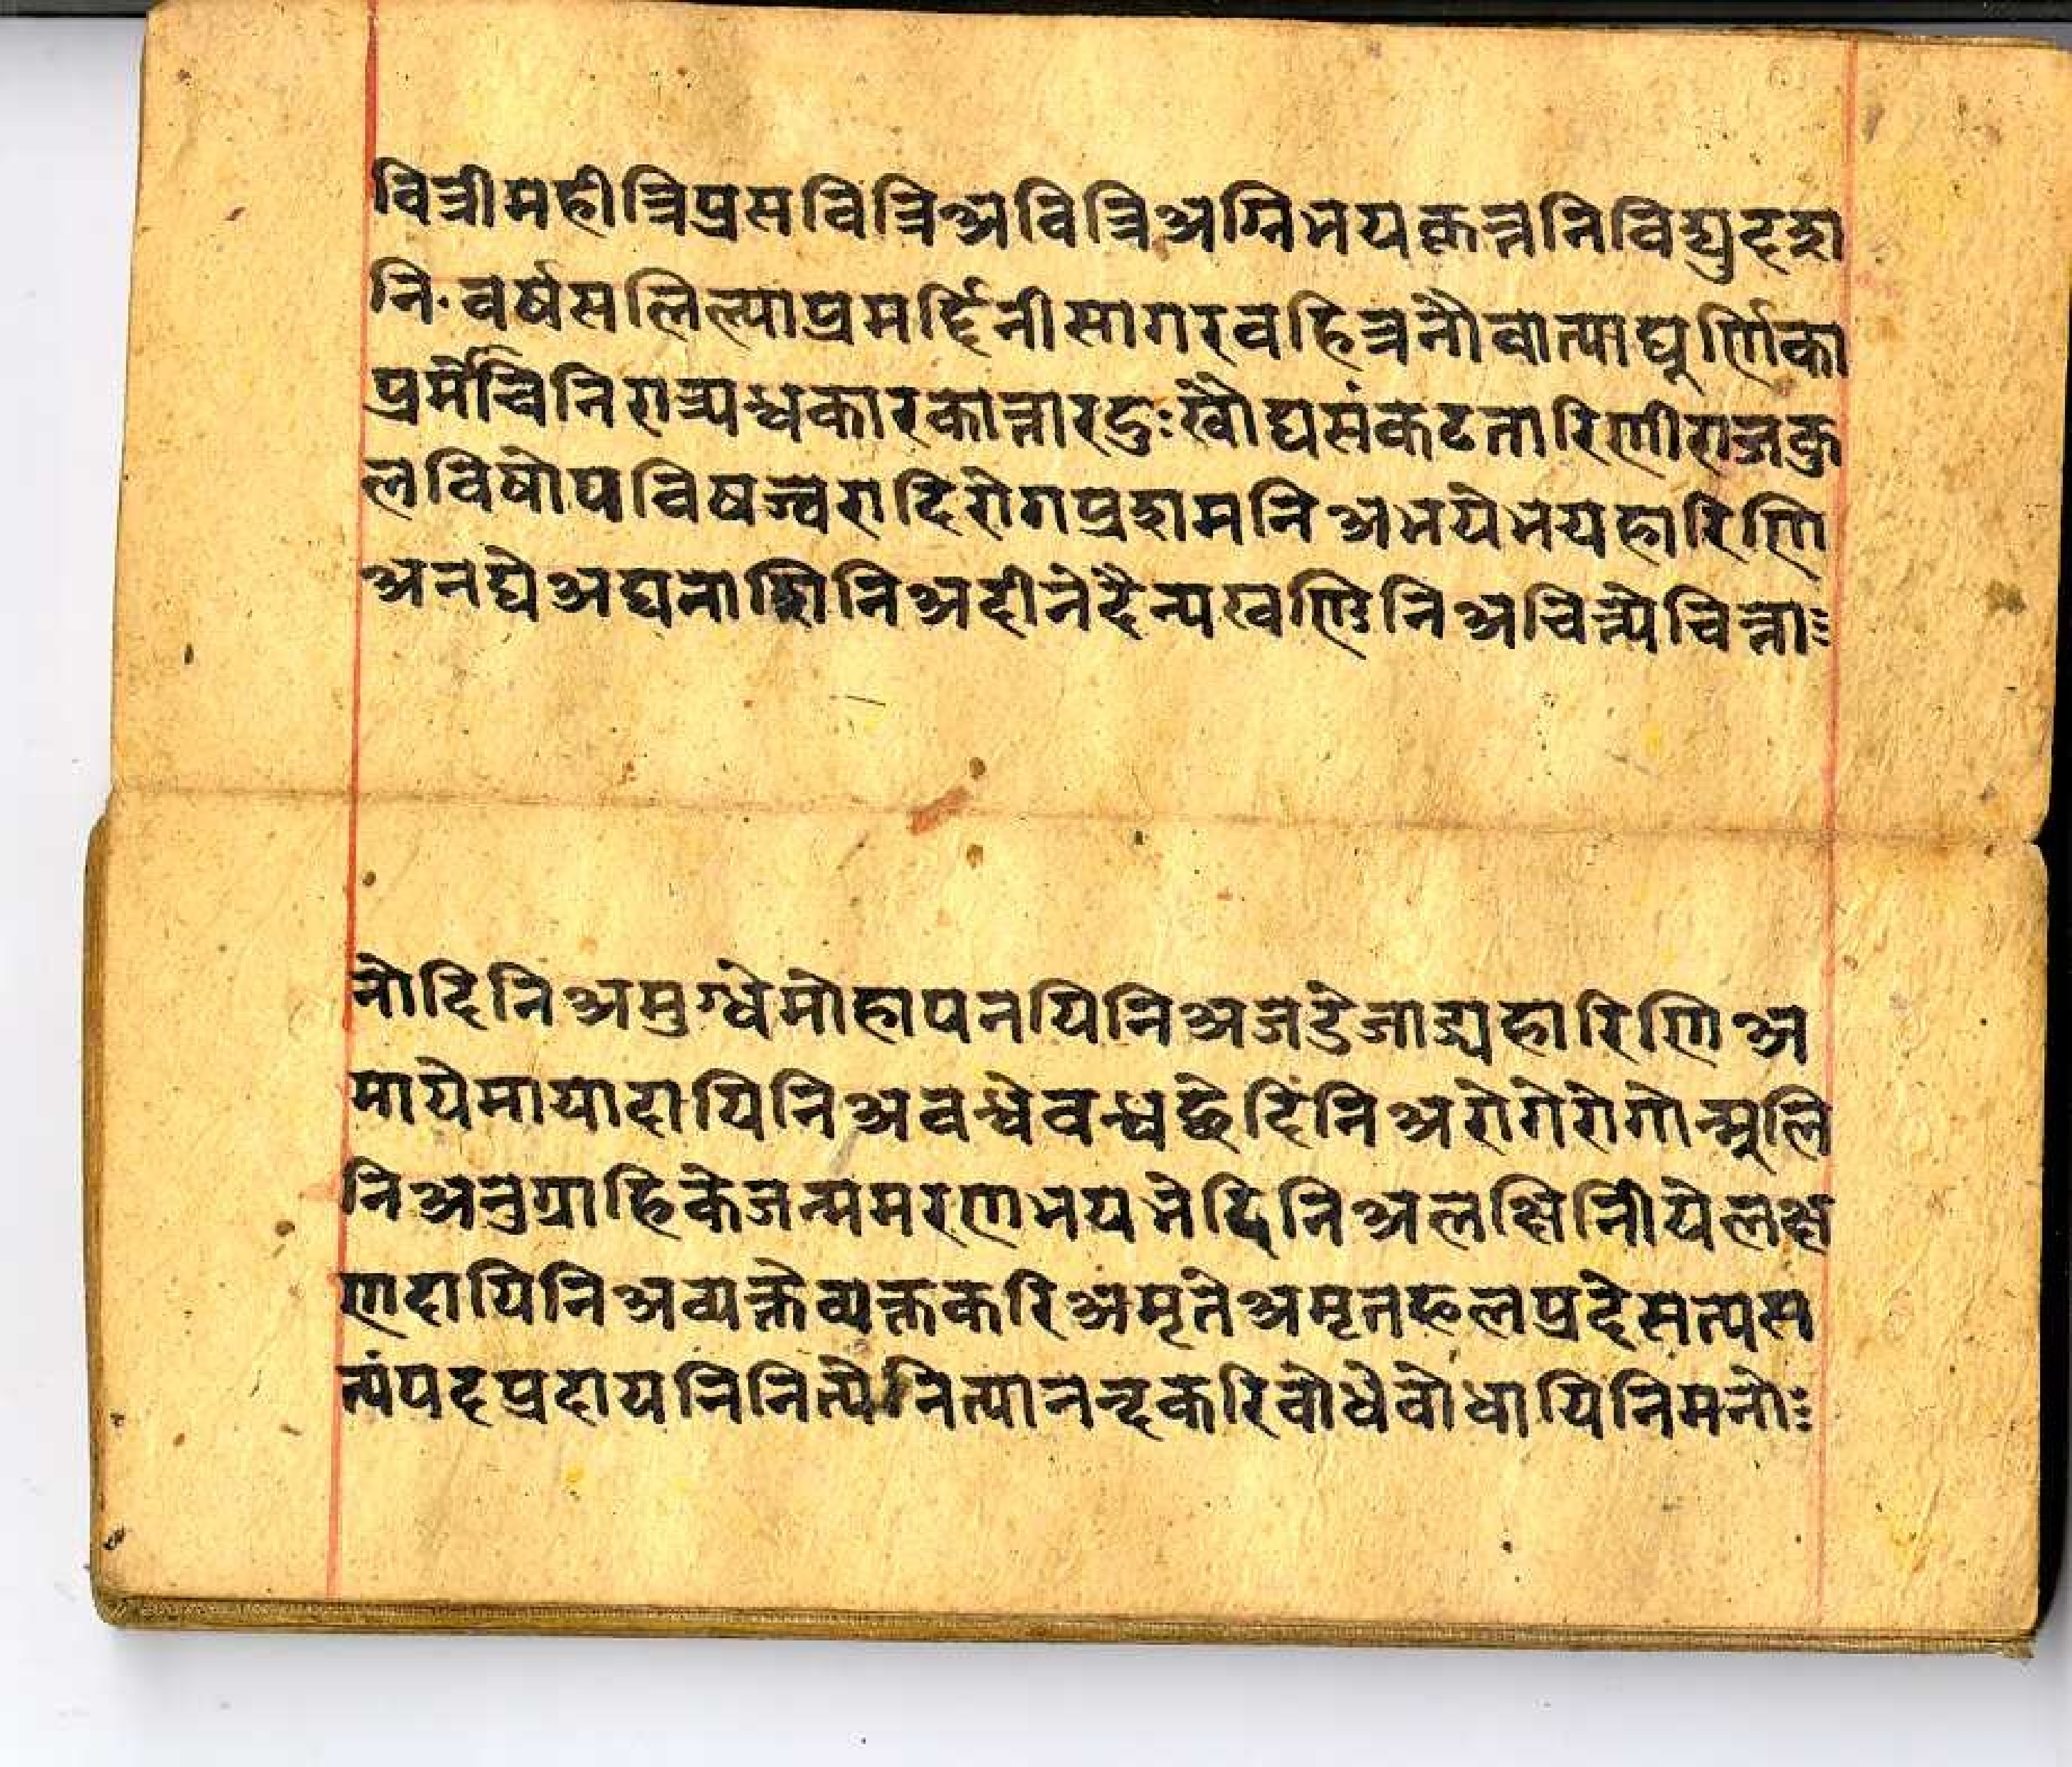 वित्रीमहीत्रिप्रसवित्रिअवित्रिअग्निभयकृन्तनिविद्युदशा
नि·वर्षसलिल्पाप्रमर्द्दिनीसागरवहित्रनौवात्याघूर्णिका
प्रमोचिनिरात्र्यन्धकारकान्तारदुःखौघसंकटतारिणीराजकु
लविषोपविषज्वरादिरोगप्रशमनिअभयेभयहारिणि
अनघेअघनाशिनिअदीनेदैन्यखण्डिनिअचिन्त्येचिन्ताः
नोदिनिअमुग्धेमोहापनयिनिअजडेजाड्यहारिणिअ
मायेमायादायिनिअवन्धेवन्धछेदिनिअरोगेरोगोन्मूलि
निअनुग्राहिकेजन्ममरणभयभेदिनिअलक्षिनीयेलक्ष
णदायिनिअव्यक्तेव्यक्तकरिअमृतेअमृतफलप्रदेसत्यस
त्यंपदप्रदायनिनित्येनित्यानन्दकरिवोधेवोधायिनिमनोः